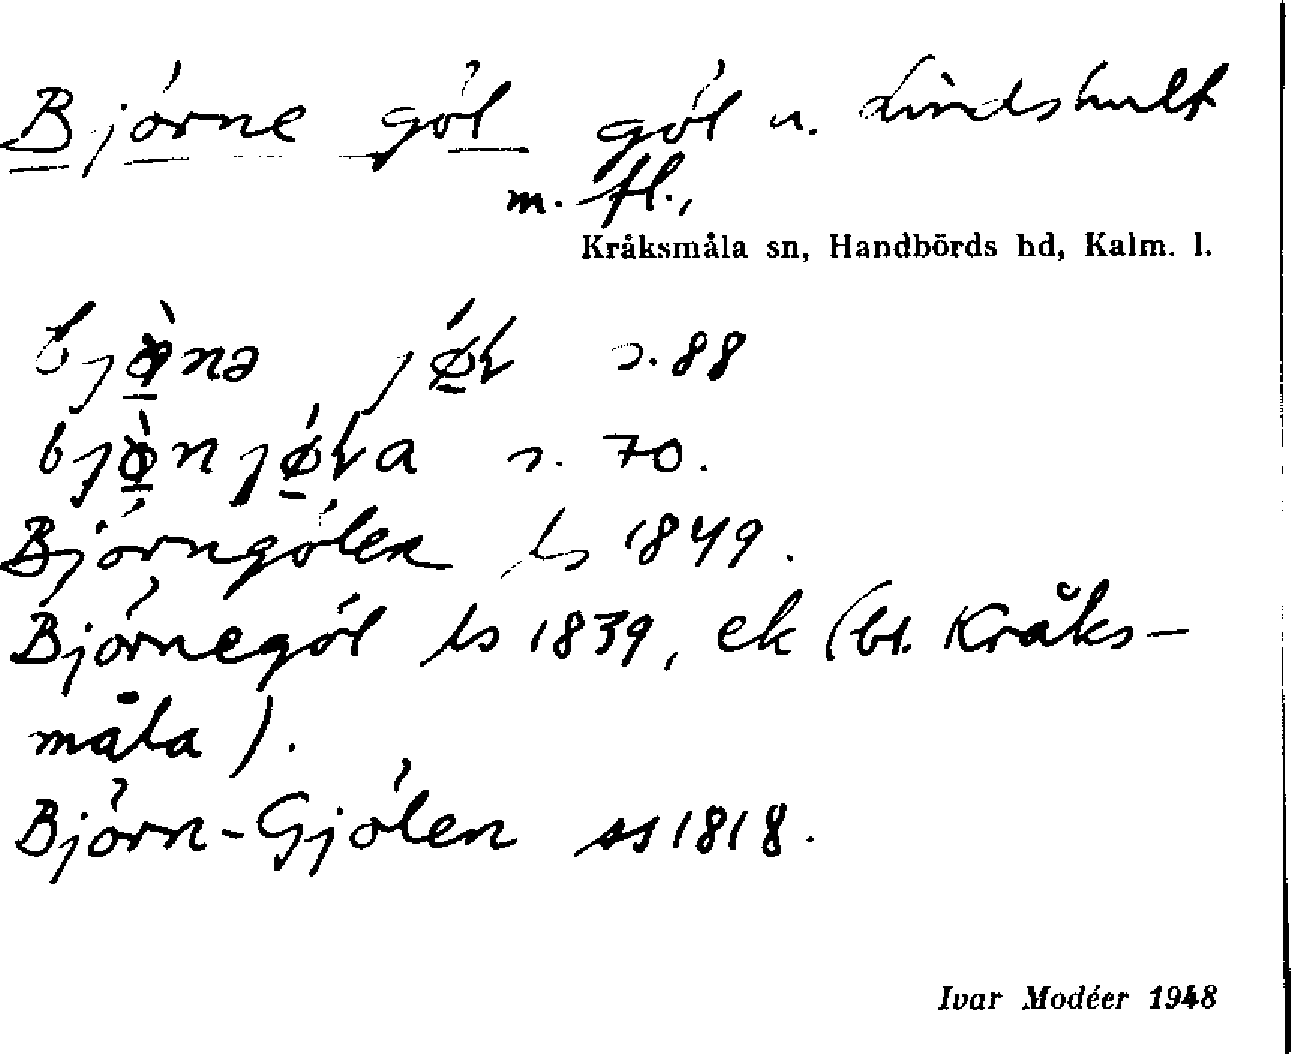 Björne göl göl u. Lindshult
m. fl.,
Kråksmåla sn, Handbörds hd, Kalm. l.
bjø̀nə jǿɫ s. 88
bjø̀njǿɫa s. 70.
Björngölen ls 1849.
Björnegöl ls 1839, ek (bl. Kråks-
måla).
Björn-Gjölen ss 1818.
Ivar Modéer 1948